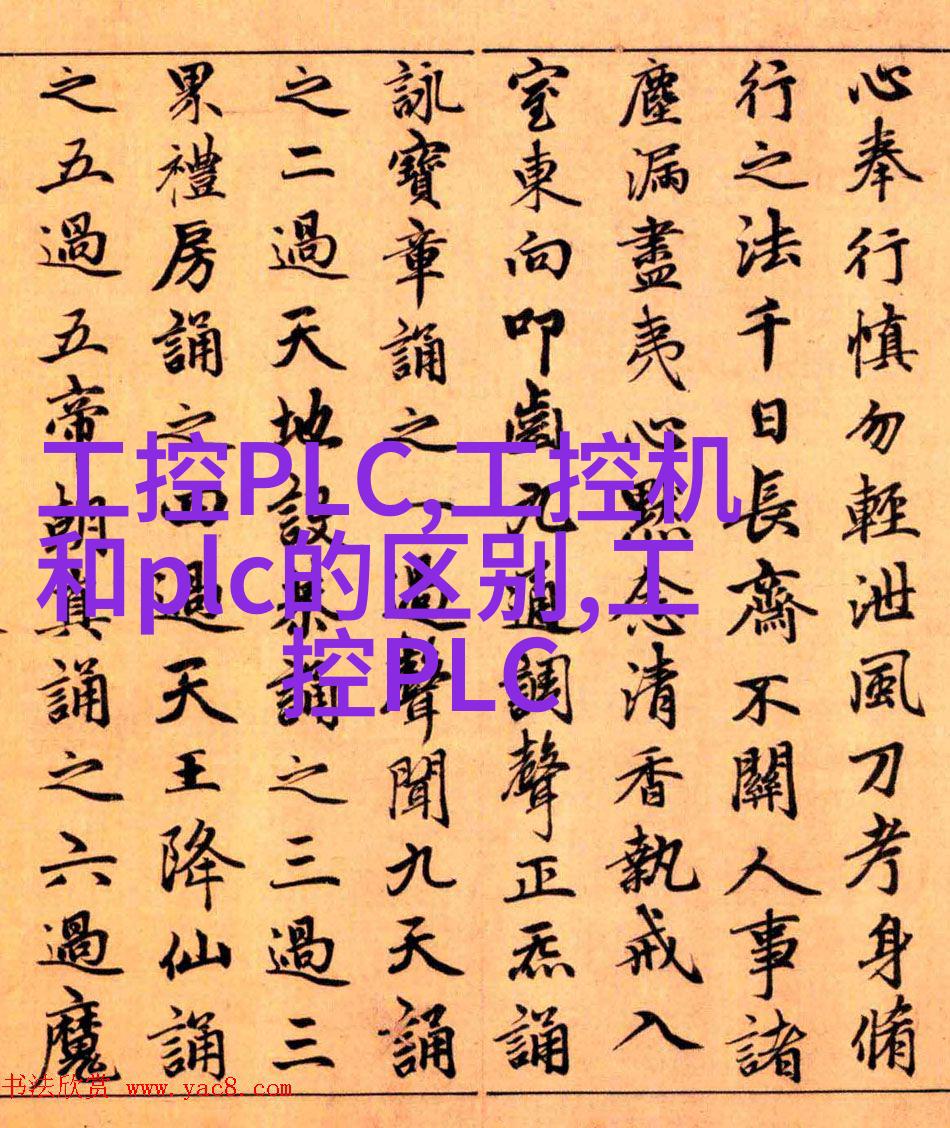 心奉行慎勿輕泄風刀考身脩
行之法千日長齋不關人事諸
塵漏盡夷心默念清香執戒入
室東向叩齒九通調聲正炁誦
詠寶章誦之一過聲聞九天誦
之二過天地設恭誦之三過三
界禮房誦之四過天王降仙誦
之五過五帝朝真誦之六過魔
工控PLC,工控机
和plc的区别,工
控PLC
书法欣赏 www.yac8.com